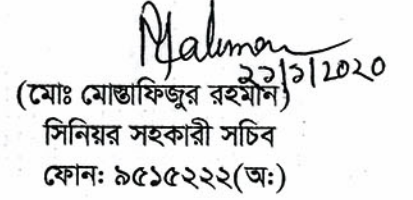 ২১/১/2020
(মোঃ মোস্তাফিজুর রহমান)
সিনিয়র সহকারী সচিব
ফোন: ৯৫১৫২২২(অ:)